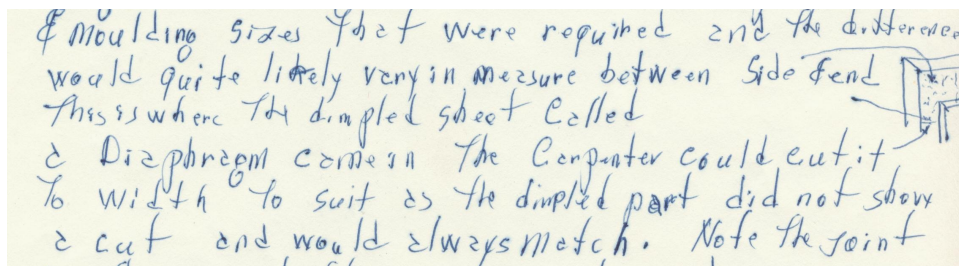 & Moulding sizes that were required and the difference
would quite likely vary in measure between side & end
This is where the dimpled sheet Called
a Diaphragm came in The Carpenter could cut it
To width to suit as the dimpled part did not show
a cut and would always match. Note the joint